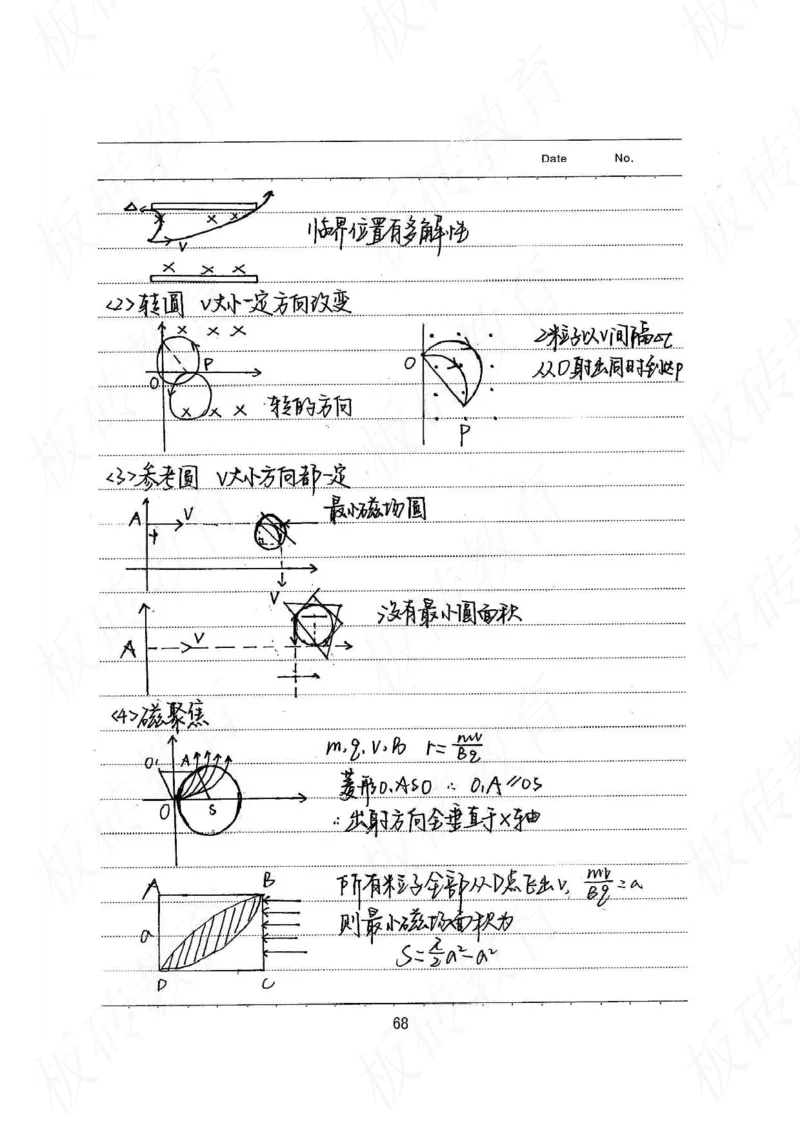 Date No.
Δ
× × ×
V
临界位置有多解性
× × ×
<2>转圆 V大小一定方向改变
× × ×
P
O
× × ×
转的方向
O
P
2粒子以V间隔Δt
从O射出同时到达P
<3>参考圆 V大小方向都一定
A V
+
最小磁场圆
V
A V
没有最小圆面积
<4>磁聚焦
O₁ A
O S
m.q.V.B r=mv/Bq
菱形O₁ASO ∴ O₁A∥OS
∴出射方向全垂直于X轴
A B
a
D C
所有粒子全部从D点飞出V, mv/Bq=a
则最小磁场面积为
S=π/2a²-a²
68
板砖教育